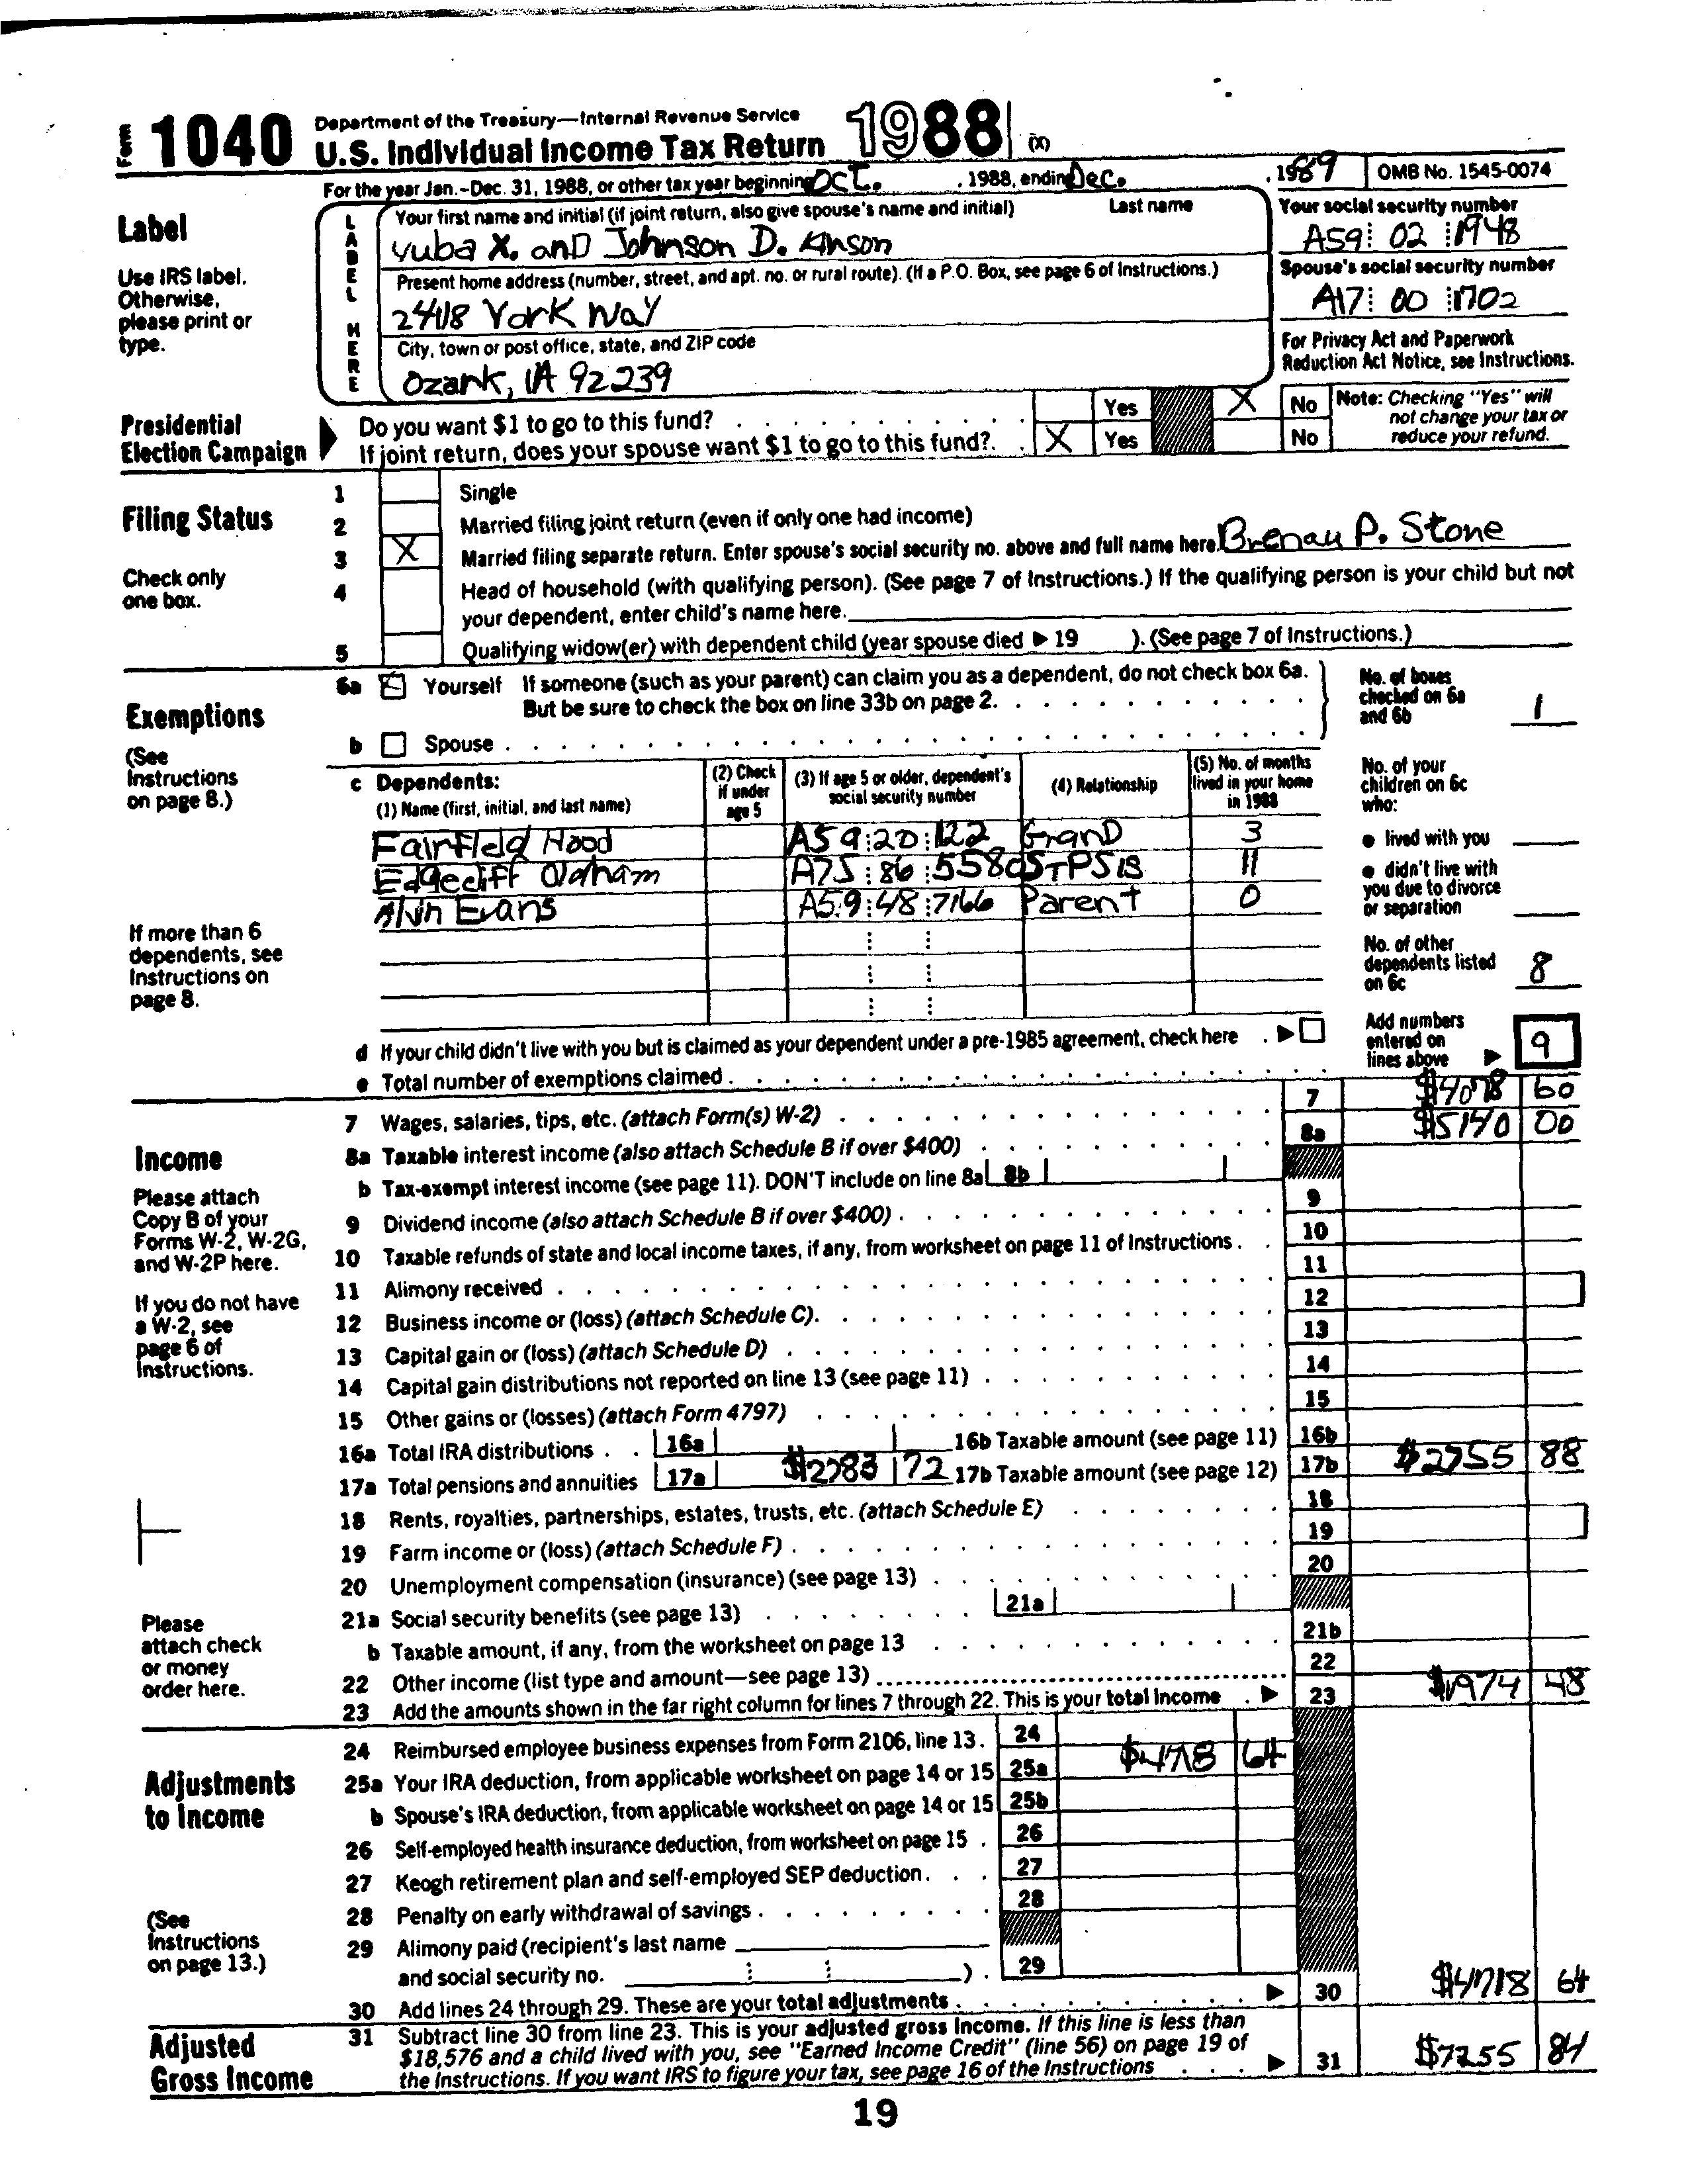 Form 1040 Department of the Treasury—Internal Revenue Service
U.S. Individual Income Tax Return 1988 (X)
For the year Jan.-Dec. 31, 1988, or other tax year beginning Oct. , 1988, ending Dec. , 1989 OMB No. 1545-0074
Label
Use IRS label.
Otherwise,
please print or
type.
LABEL HERE
Your first name and initial (if joint return, also give spouse's name and initial) Last name
Yuba X. and Johnson D. Kinson
Present home address (number, street, and apt. no. or rural route). (If a P.O. Box, see page 6 of Instructions.)
2418 York Way
City, town or post office, state, and ZIP code
Ozark, IA 92239
Your social security number
A59 02 1948
Spouse's social security number
A17 00 1702
For Privacy Act and Paperwork
Reduction Act Notice, see Instructions.
Presidential
Election Campaign
Do you want $1 to go to this fund? Yes X No
If joint return, does your spouse want $1 to go to this fund? X Yes No
Note: Checking "Yes" will
not change your tax or
reduce your refund.
Filing Status
Check only
one box.
1 Single
2 Married filing joint return (even if only one had income)
3 X Married filing separate return. Enter spouse's social security no. above and full name here. Brenau P. Stone
4 Head of household (with qualifying person). (See page 7 of Instructions.) If the qualifying person is your child but not
your dependent, enter child's name here.
5 Qualifying widow(er) with dependent child (year spouse died ▶ 19 ). (See page 7 of Instructions.)
Exemptions
(See
Instructions
on page 8.)
If more than 6
dependents, see
Instructions on
page 8.
6a X Yourself If someone (such as your parent) can claim you as a dependent, do not check box 6a.
But be sure to check the box on line 33b on page 2.
b Spouse
No. of boxes
checked on 6a
and 6b 1
c Dependents:
(1) Name (first, initial, and last name)
(2) Check
if under
age 5
(3) If age 5 or older, dependent's
social security number
(4) Relationship
(5) No. of months
lived in your home
in 1988
Fairfield Hood A59 20 122 Grand 3
Edgecliff Oldham A75 86 5580 STPSIS 11
Alvin Evans A59 48 7166 Parent 0
No. of your
children on 6c
who:
● lived with you
● didn't live with
you due to divorce
or separation
No. of other
dependents listed
on 6c 8
Add numbers
entered on
lines above ▶ 9
d If your child didn't live with you but is claimed as your dependent under a pre-1985 agreement, check here . ▶
e Total number of exemptions claimed
Income
Please attach
Copy B of your
Forms W-2, W-2G,
and W-2P here.
If you do not have
a W-2, see
page 6 of
Instructions.
Please
attach check
or money
order here.
7 Wages, salaries, tips, etc. (attach Form(s) W-2) 7 $4078 60
8a Taxable interest income (also attach Schedule B if over $400) 8a $5140 00
b Tax-exempt interest income (see page 11). DON'T include on line 8a 8b
9 Dividend income (also attach Schedule B if over $400) 9
10 Taxable refunds of state and local income taxes, if any, from worksheet on page 11 of Instructions 10
11 Alimony received 11
12 Business income or (loss) (attach Schedule C) 12
13 Capital gain or (loss) (attach Schedule D) 13
14 Capital gain distributions not reported on line 13 (see page 11) 14
15 Other gains or (losses) (attach Form 4797) 15
16a Total IRA distributions 16a 16b Taxable amount (see page 11) 16b
17a Total pensions and annuities 17a $2783 72 17b Taxable amount (see page 12) 17b $2755 88
18 Rents, royalties, partnerships, estates, trusts, etc. (attach Schedule E) 18
19 Farm income or (loss) (attach Schedule F) 19
20 Unemployment compensation (insurance) (see page 13) 20
21a Social security benefits (see page 13) 21a
b Taxable amount, if any, from the worksheet on page 13 21b
22 Other income (list type and amount—see page 13) 22
23 Add the amounts shown in the far right column for lines 7 through 22. This is your total income ▶ 23 $11974 48
Adjustments
to Income
(See
Instructions
on page 13.)
24 Reimbursed employee business expenses from Form 2106, line 13. 24
25a Your IRA deduction, from applicable worksheet on page 14 or 15 25a $4718 64
b Spouse's IRA deduction, from applicable worksheet on page 14 or 15 25b
26 Self-employed health insurance deduction, from worksheet on page 15 26
27 Keogh retirement plan and self-employed SEP deduction 27
28 Penalty on early withdrawal of savings 28
29 Alimony paid (recipient's last name
and social security no. ) 29
30 Add lines 24 through 29. These are your total adjustments ▶ 30 $4718 64
Adjusted
Gross Income
31 Subtract line 30 from line 23. This is your adjusted gross income. If this line is less than
$18,576 and a child lived with you, see "Earned Income Credit" (line 56) on page 19 of
the Instructions. If you want IRS to figure your tax, see page 16 of the Instructions ▶ 31 $7255 84
19